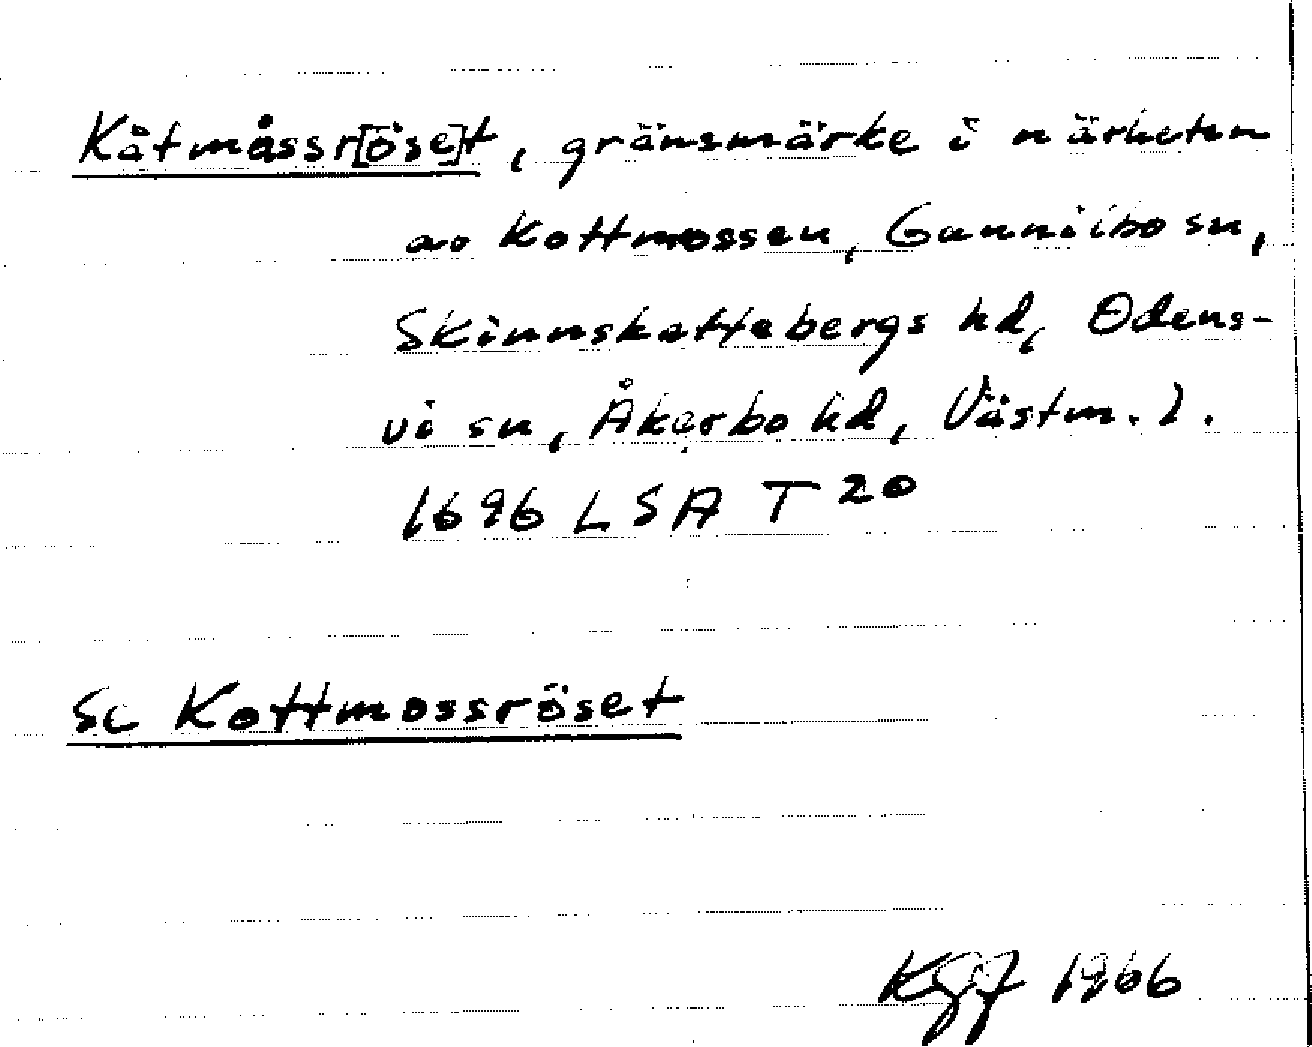 Kåtmåssr[öse]t, gränsmärke i närheten
av Kottmossen, Gunnilbo sn,
Skinnskattebergs hd, Odens-
vi sn, Åkerbo hd, Västm. l.
1696 LSA T 20
Se Kottmossröset
1966